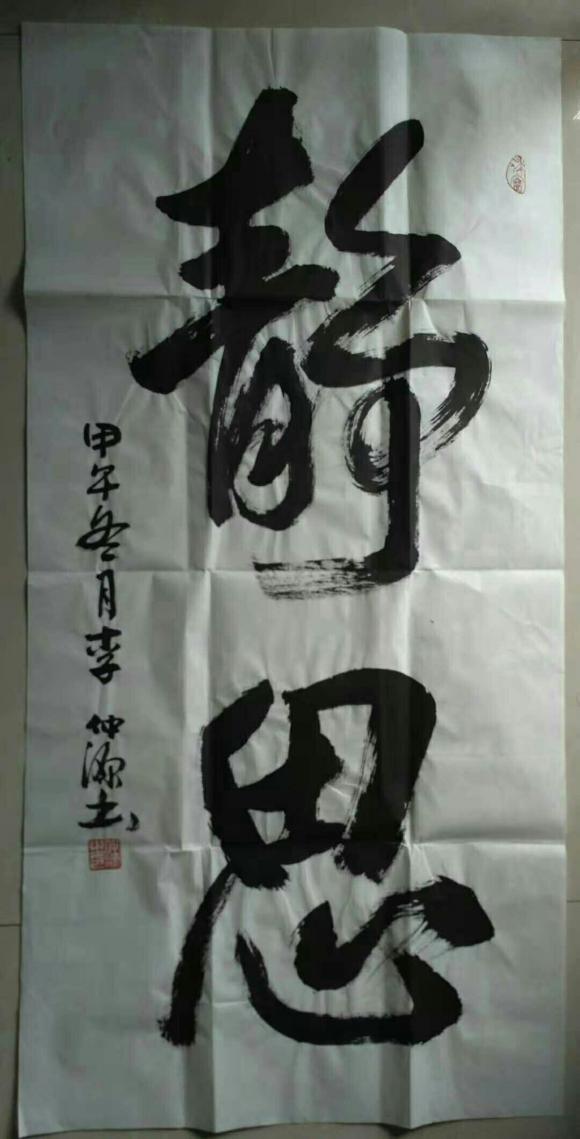 静思
甲午冬月李仲源书